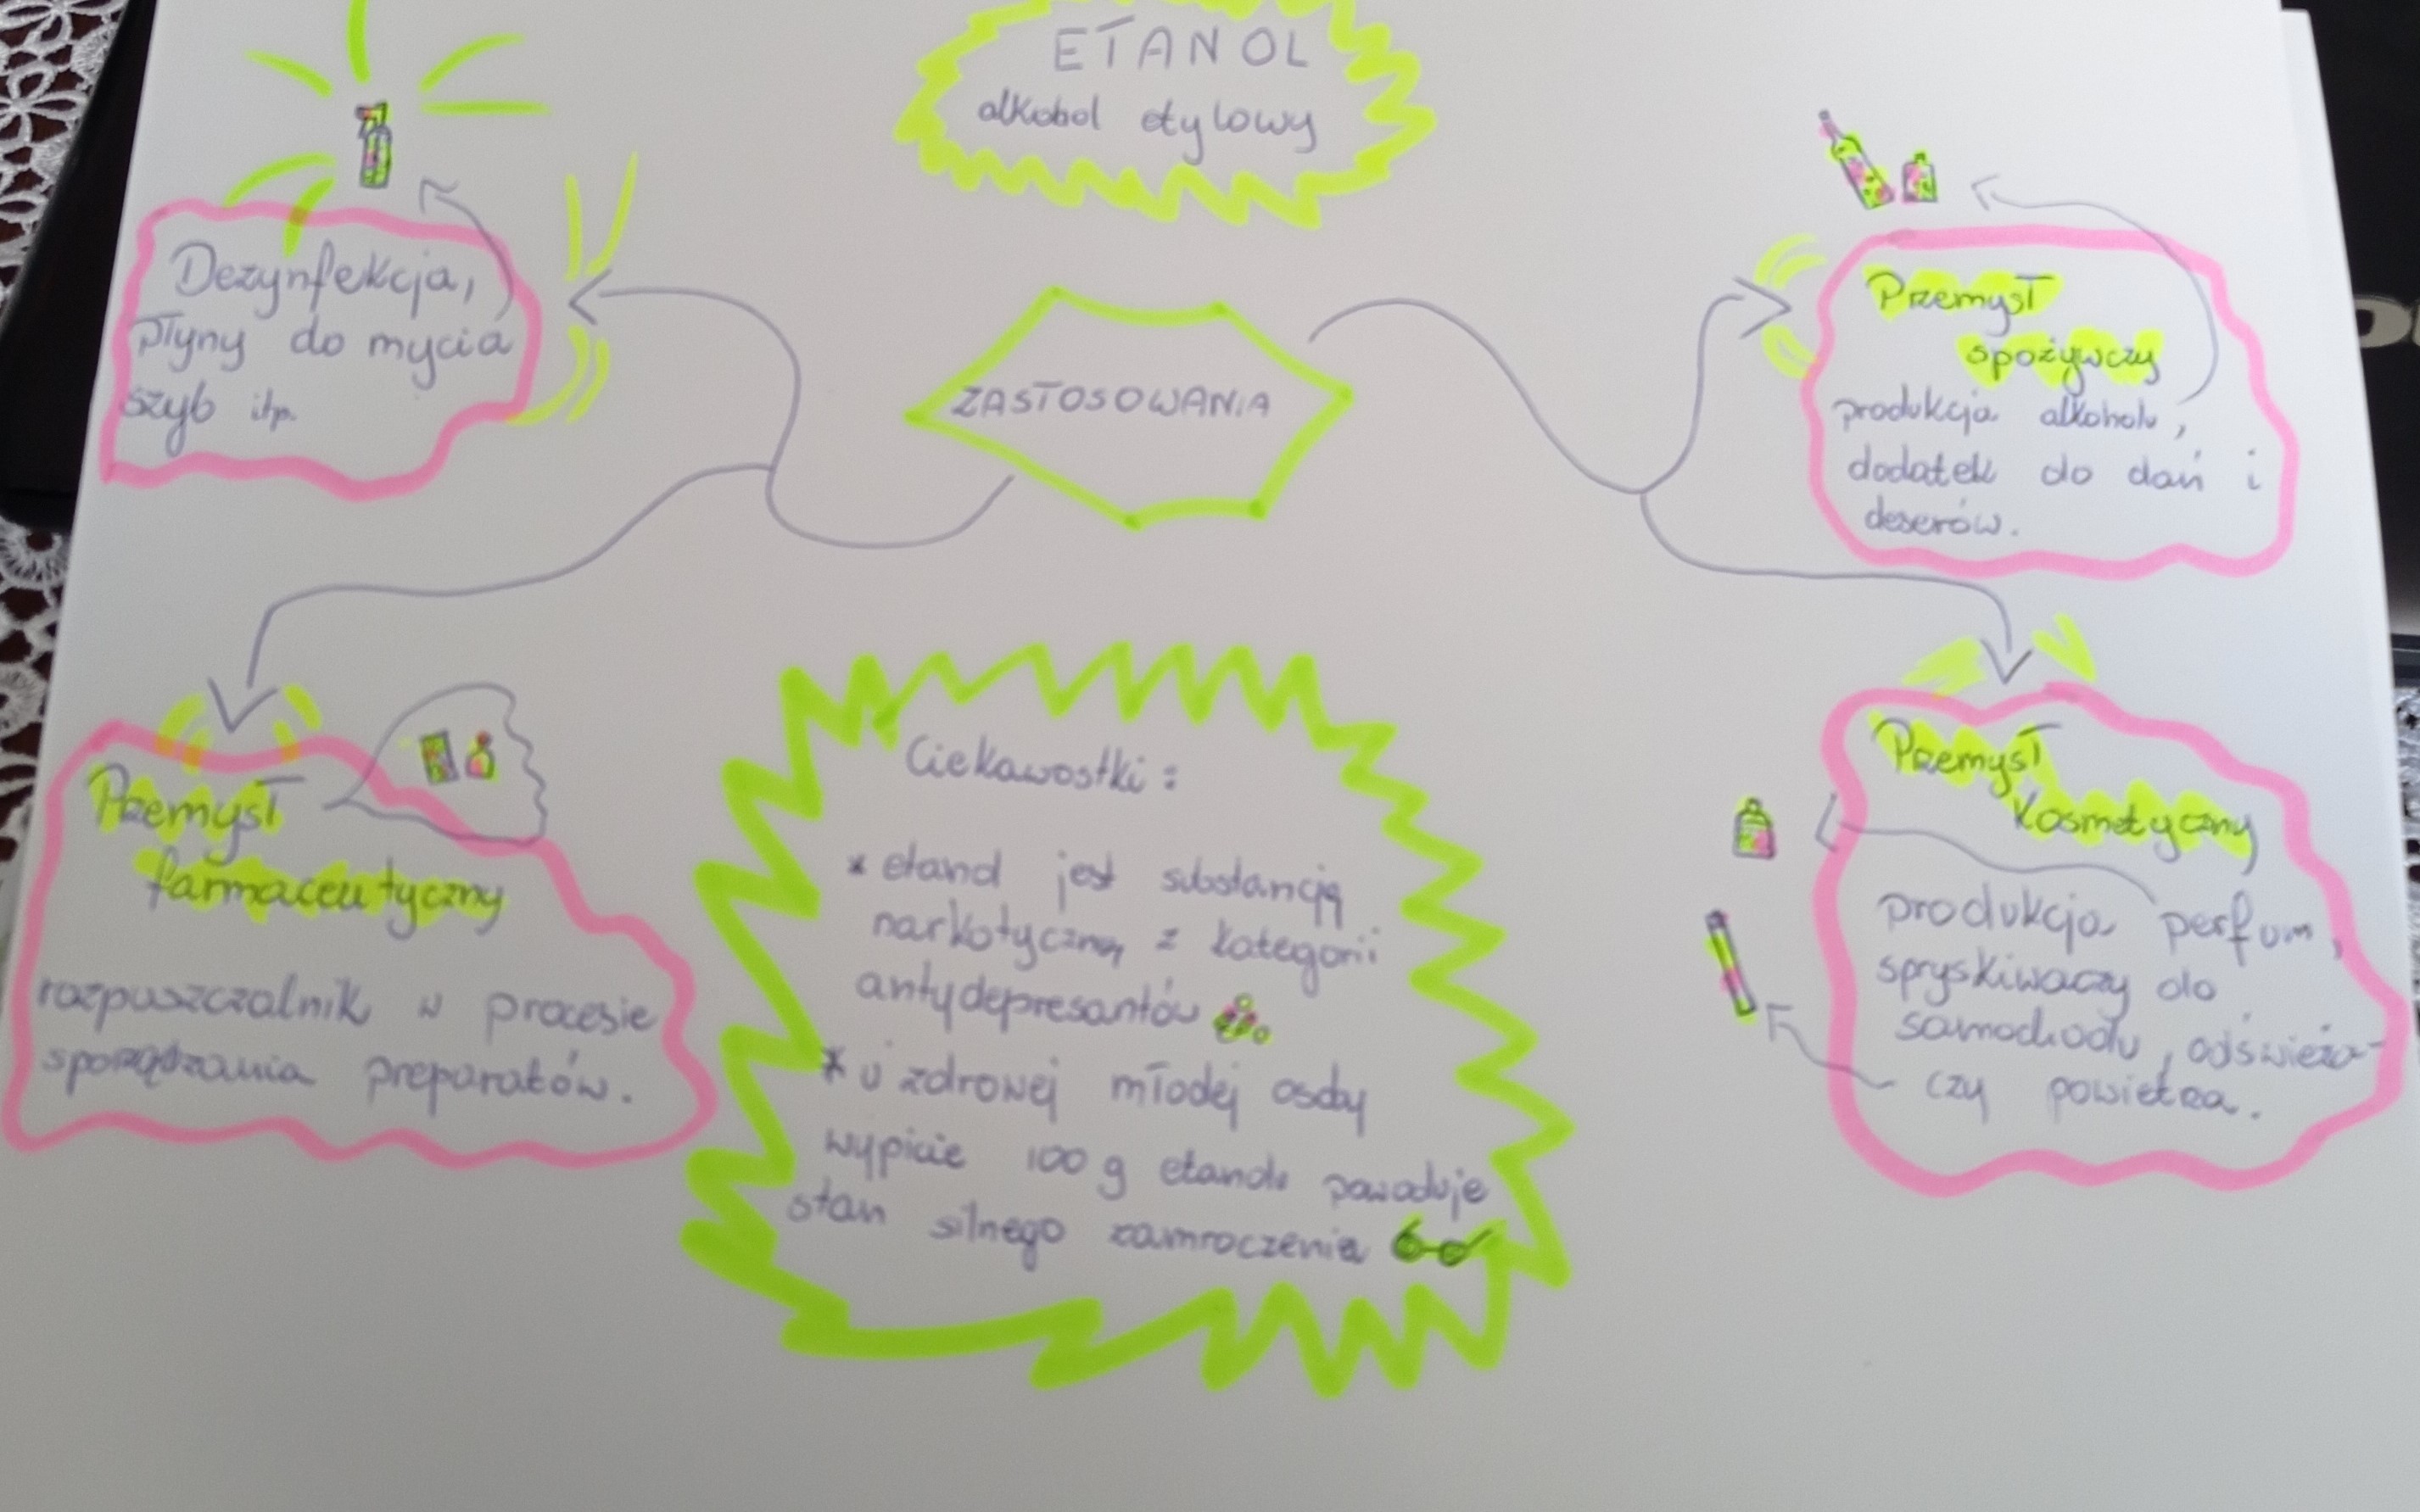 ETANOL
alkohol etylowy
ZASTOSOWANIA
Dezynfekcja,
płyny do mycia
szyb itp.
Przemysł
spożywczy
produkcja alkoholu,
dodatek do dań i
deserów.
Przemysł
farmaceutyczny
rozpuszczalnik w procesie
sporządzania preparatów.
Ciekawostki:
* etanol jest substancją
narkotyczną z kategorii
antydepresantów
* u zdrowej młodej osoby
wypicie 100 g etanolu powoduje
stan silnego zamroczenia
Przemysł
kosmetyczny
produkcja perfum,
spryskiwaczy do
samochodu, odświeża-
czy powietrza.